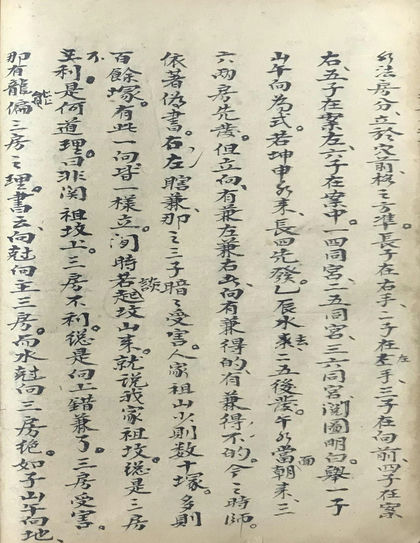 水法房分、立於穴前格之為準。長子在右手、二子在左手、三子在向前、四子在案
右、五子在案左、六子在案中。一四同宮、二五同宮、三六同宮、閱圖明白。舉一子
山午向為式。若坤申水來、長四先發。乙辰水來去、二五後發。午水當面朝來、三
六兩房先發。但立向、有兼左兼右、此向有兼得的、有兼得不的。今之時師。
依著偽書。右左瞎兼、那之三子暗之受害。人家祖山少則數十塚。多則
百餘塚。有此一向皆一樣立。閒時若談起坟山來、就說我家祖坟、總是三房
不利。是何道理。曰非関祖坟上。三房不利、總是向上錯兼了。三房受害。
那有龍能偏三房之理。書云、向尅向主三房。而水尅向三房絶。如子山午向、地